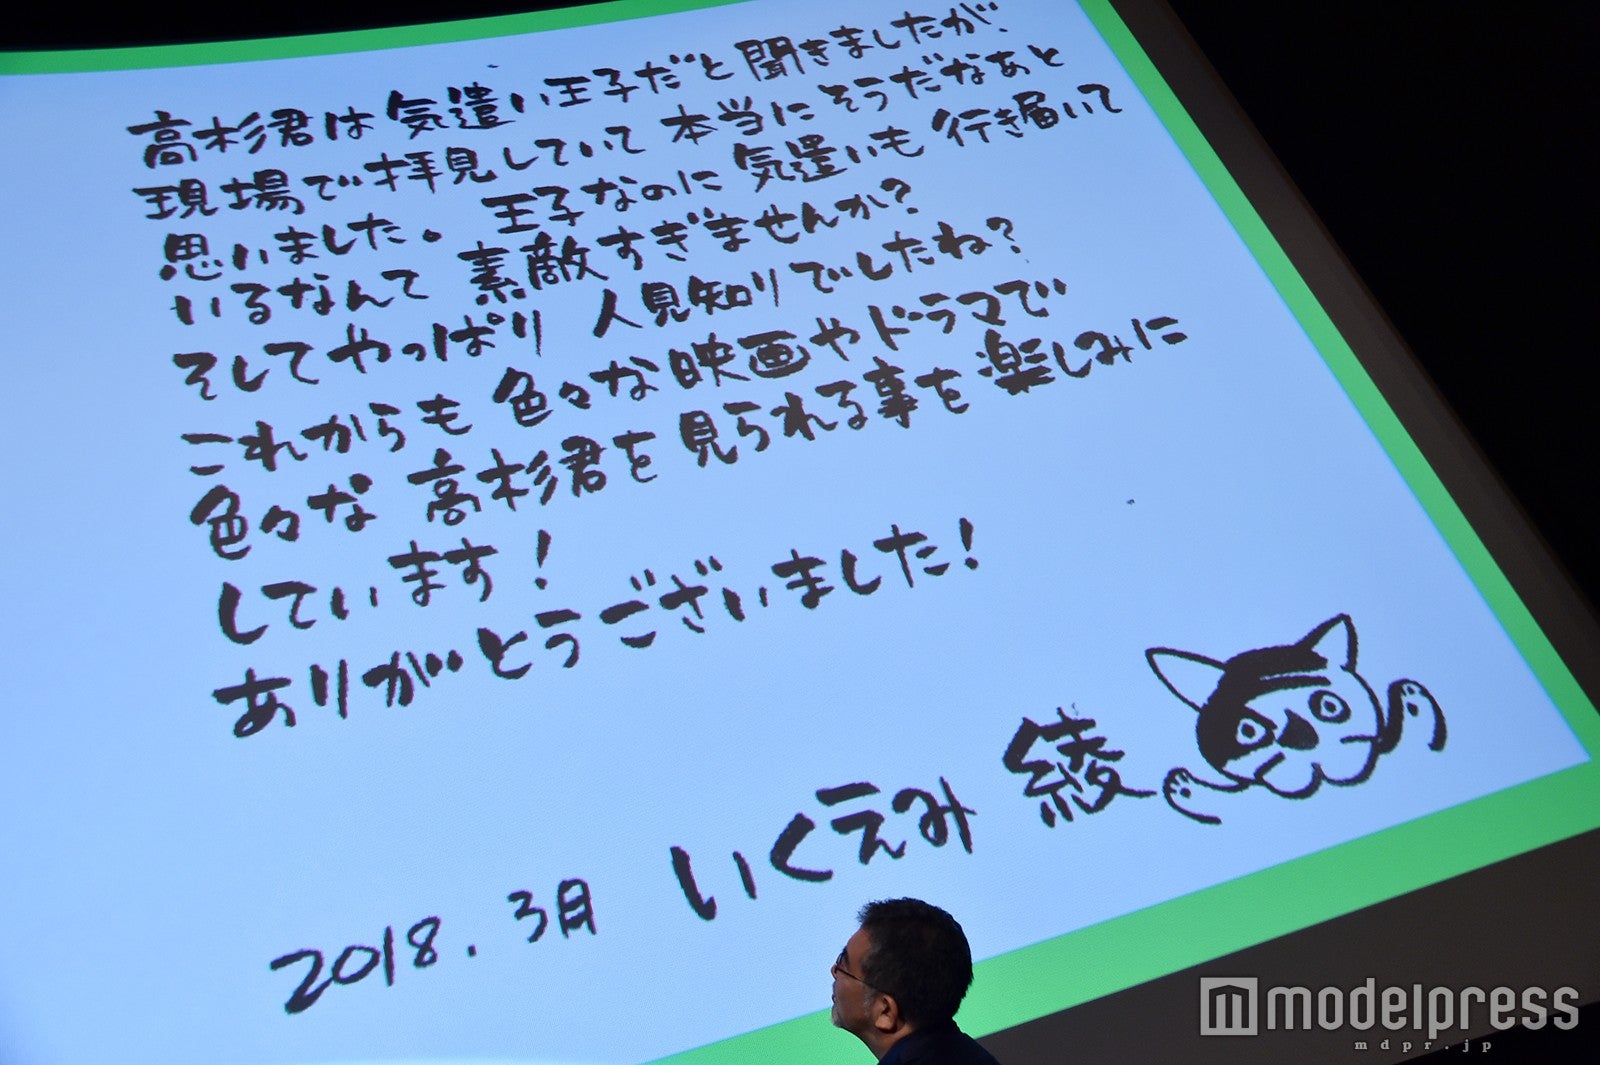 高杉君は気遣い王子だと聞きましたが、
現場で拝見していて本当にそうだなあと
思いました。王子なのに気遣いも行き届いて
いるなんて素敵すぎませんか?
そしてやっぱり人見知りでしたね?
これからも色々な映画やドラマで
色々な高杉君を見られる事を楽しみに
しています!
ありがとうございました!
2018.3月 いくえみ綾
modelpress
mdpr.jp